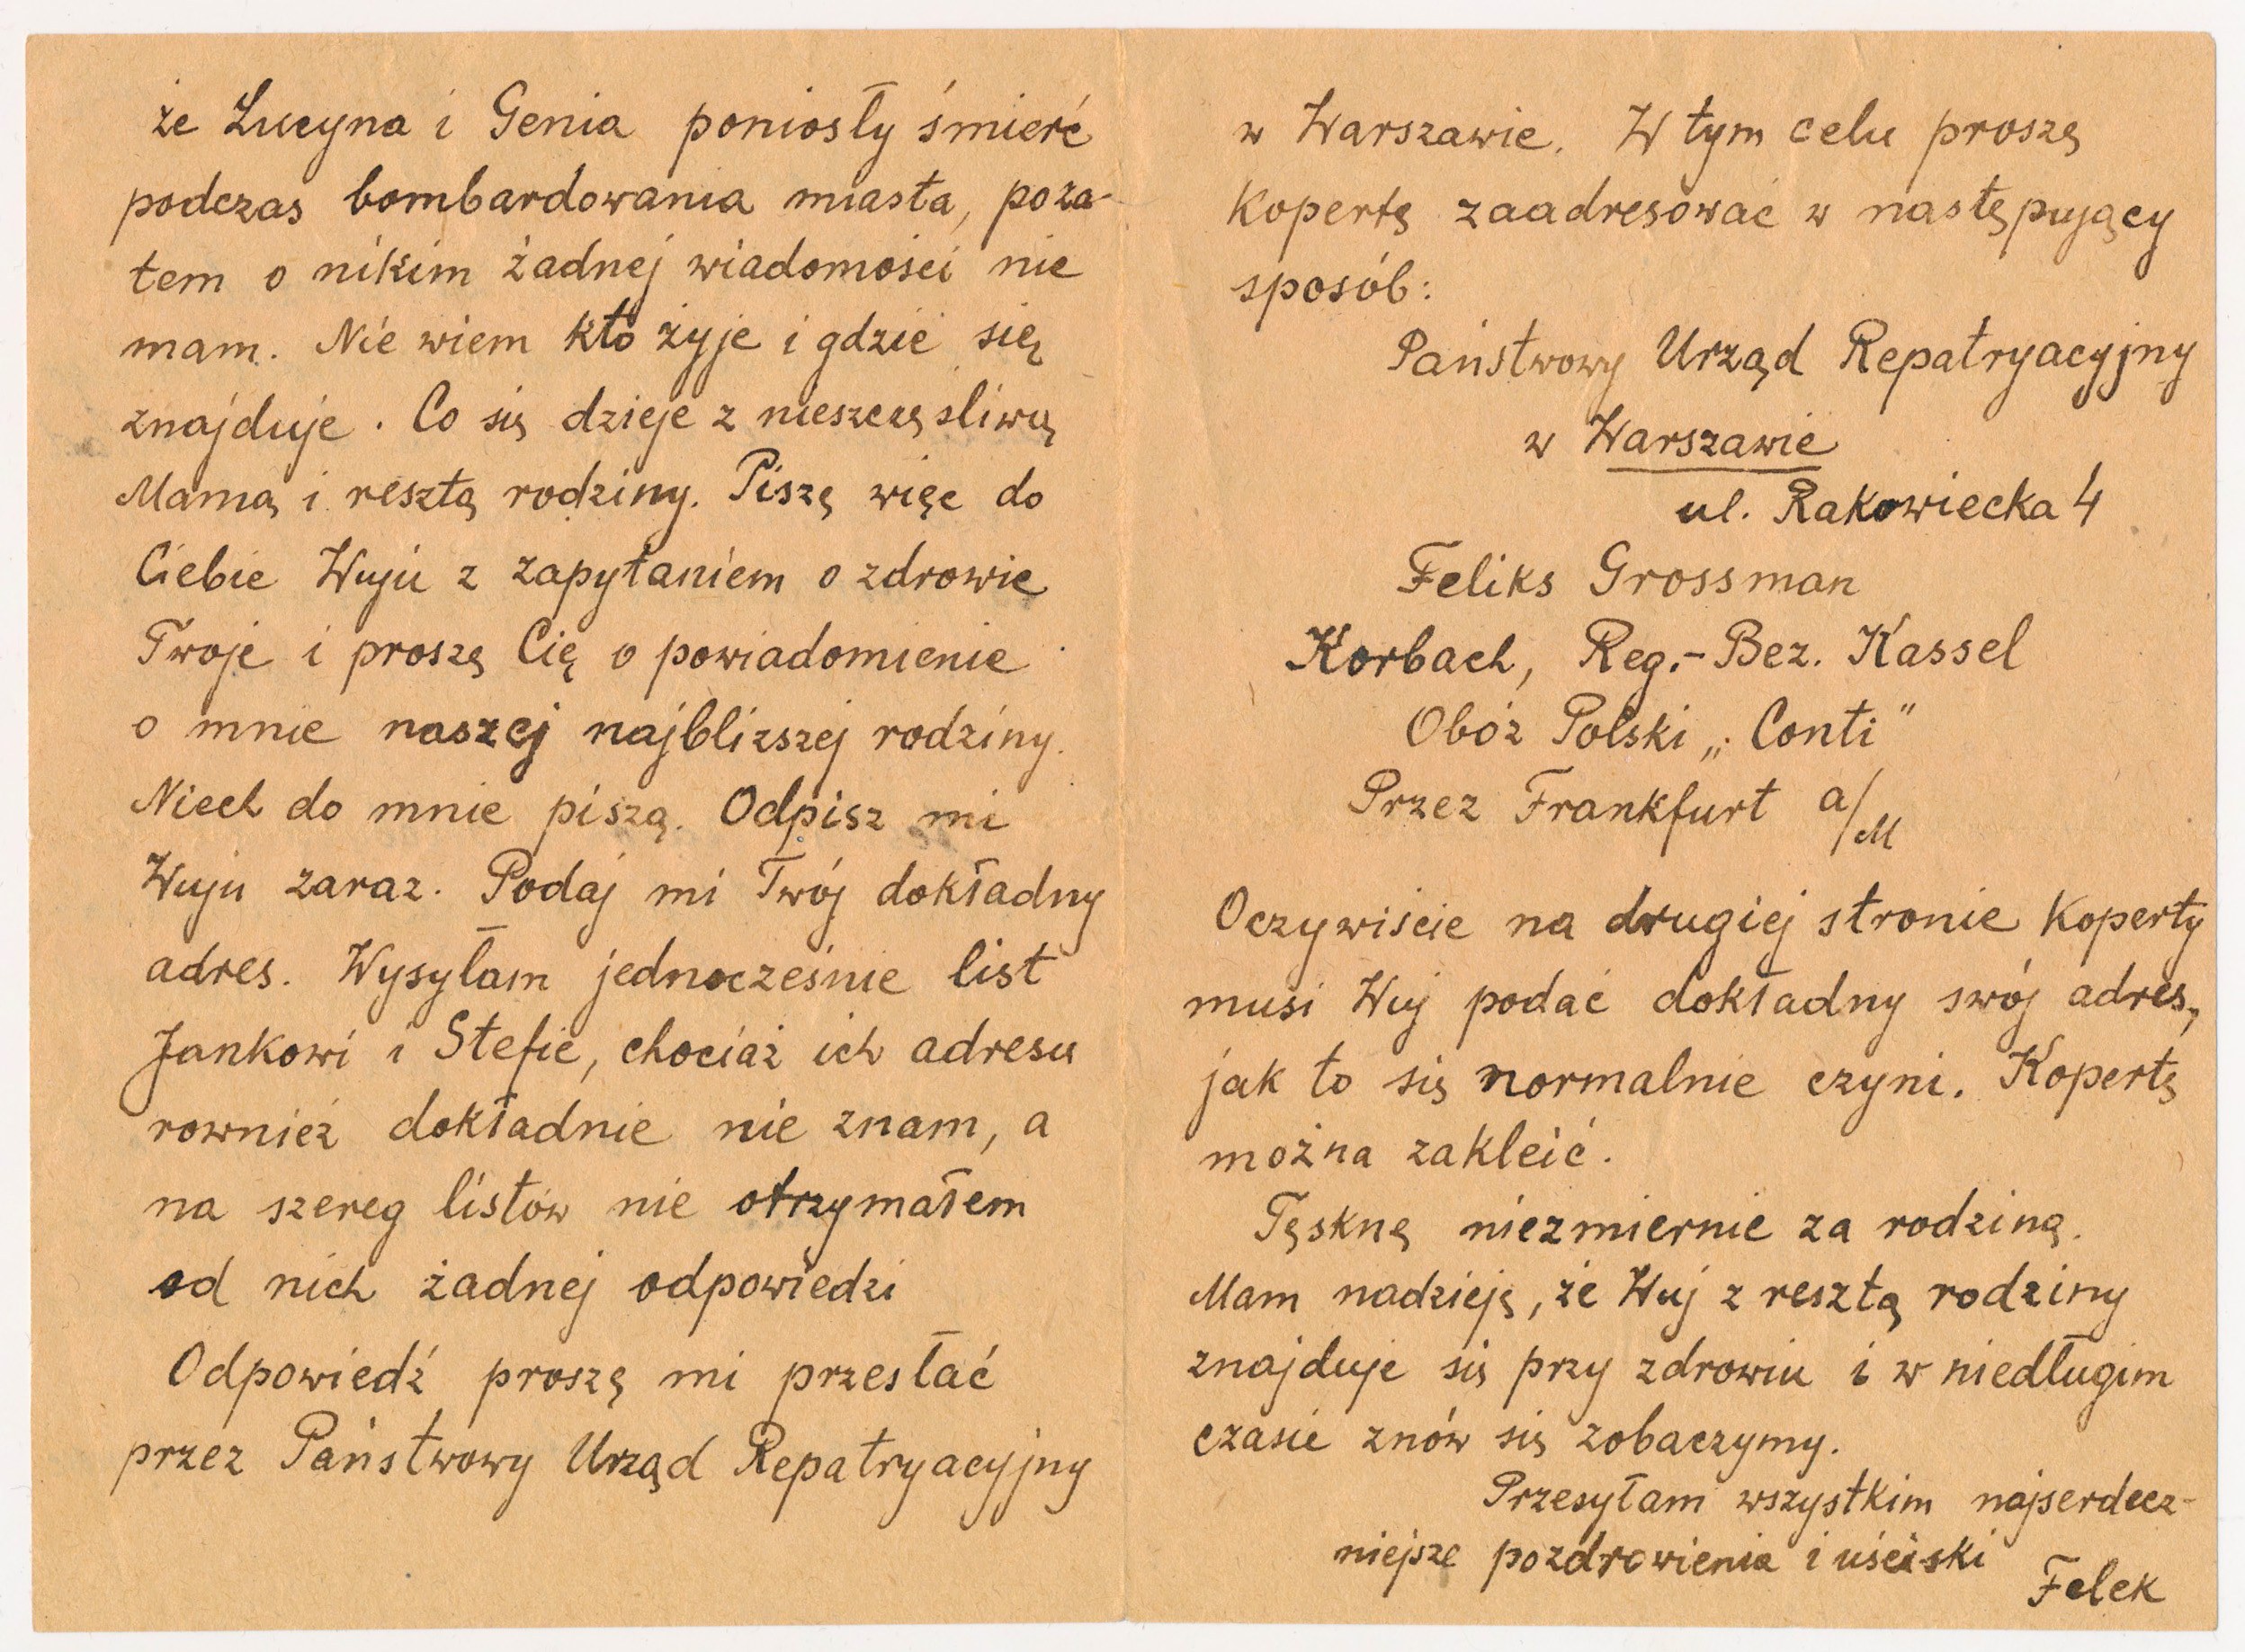 że Lucyna i Genia poniosły śmierć
podczas bombardowania miasta, poza-
tem o nikim żadnej wiadomości nie
mam. Nie wiem kto żyje i gdzie się
znajduje. Co się dzieje z nieszczęśliwą
Mamą i resztą rodziny. Piszę więc do
Ciebie Wuju z zapytaniem o zdrowie
Twoje i proszę Cię o powiadomienie
o mnie naszej najbliższej rodziny.
Niech do mnie piszą. Odpisz mi
Wuju zaraz. Podaj mi Twój dokładny
adres. Wysyłam jednocześnie list
Jankowi i Stefie, chociaż ich adresu
rownież dokładnie nie znam, a
na szereg listów nie otrzymałem
od nich żadnej odpowiedzi
Odpowiedź proszę mi przesłać
przez Państwowy Urząd Repatryacyjny
w Warszawie. W tym celu proszę
kopertę zaadresować w następujący
sposób:
Państwowy Urząd Repatryacyjny
w Warszawie
ul. Rakowiecka 4
Feliks Grossman
Korbach, Reg.-Bez. Kassel
Obóz Polski „Conti"
Przez Frankfurt a/M
Oczywiście na drugiej stronie koperty
musi Wuj podać dokładny swój adres,
jak to się normalnie czyni. Kopertę
można zakleić.
Tęsknę niezmiernie za rodziną.
Mam nadzieję, że Wuj z resztą rodziny
znajduje się przy zdrowiu i w niedługim
czasie znów się zobaczymy.
Przesyłam wszystkim najserdecz-
niejsze pozdrowienia i uściski
Felek